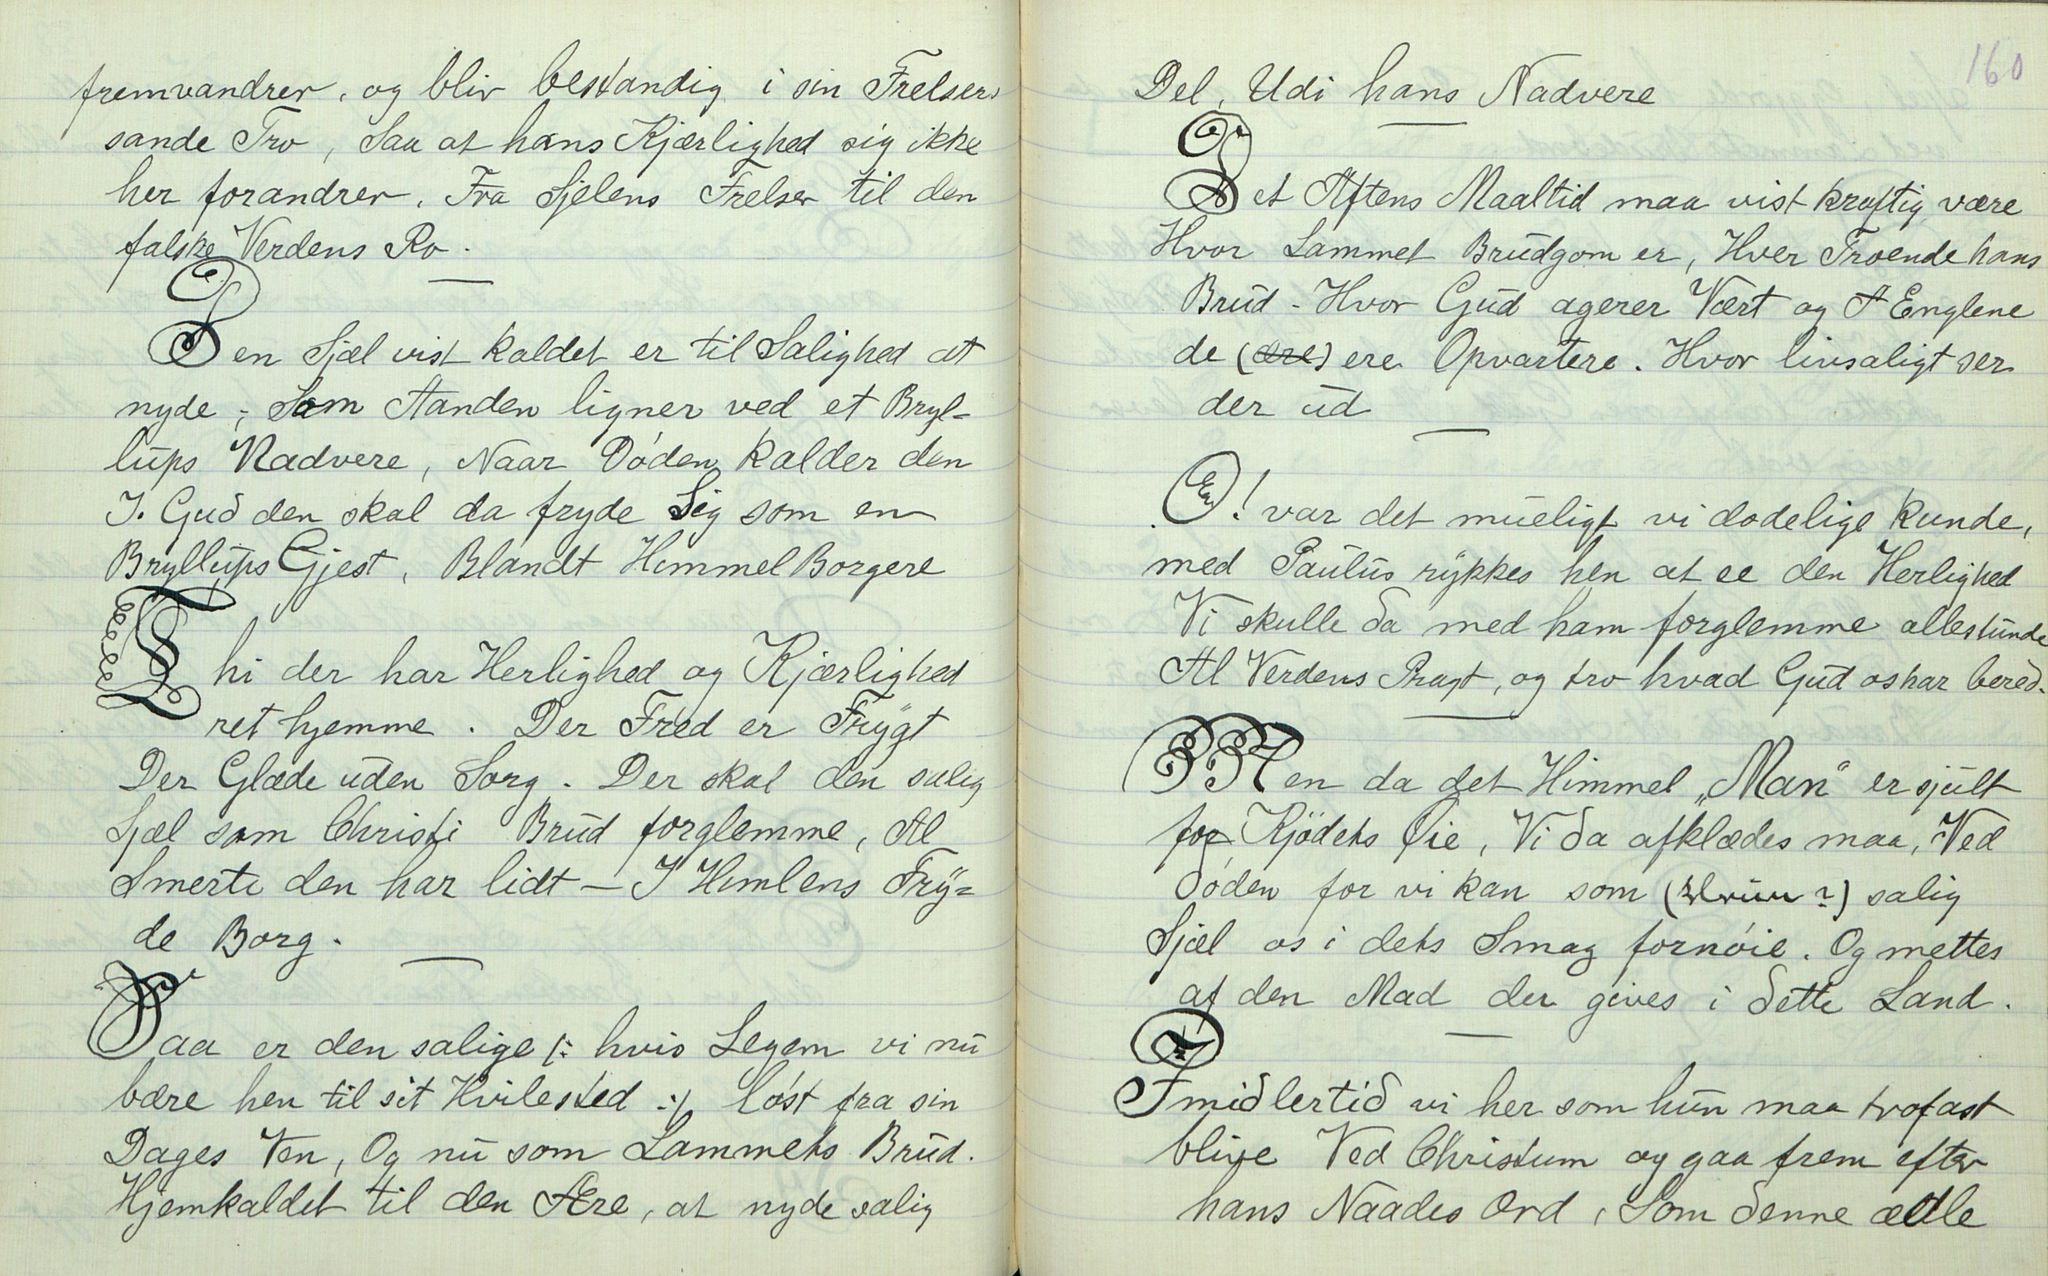 fremvandrer, og bliv bestandig i sin Frelsers
sande Tro, Saa at hans Kjærlighed sig ikke
her forandrer. Fra Sjelens Frelser til den
falske Verdens Ro.
Den Sjæl vist kaldet er til Salighed at
nyde, Som Aanden ligner ved et Bryl=
lups Nadvere, Naar Døden kalder den
I. Gud den skal da fryde Sig som en
Bryllups Gjest, Blandt Himmel Borgere
Thi der har Herlighed og Kjærlighed
ret hjemme. Der Fred er Frygt
Der Glæde uden Sorg. Der skal den salig
Sjæl som Christi Brud forglemme, Al
Smerte den har lidt - I Himlens Fry=
de Borg.
Saa er den salige /: hvis Legem vi nu
bære hen til sit Hvilested :/ løst fra sin
Dages Ven, Og nu som Lammets Brud.
Hjemkaldet til den Ære, at nyde salig
160
Del, Udi hans Nadvere
Det Aftens Maaltid maa vist kraftig være
Hvor Lammet Brudgom er, Hver Troende hans
Brud - Hvor Gud agerer Vært og A Englene
de (ere) ere Opvartere. Hvor livsaligt ser
der ud
O! var det mueligt vi dødelige kunde,
med Paulus rykkes hen at se den Herlighed
Vi skulle da med ham forglemme allestunde
Al Verdens Pragt, og tro hvad Gud os har bered.
Men da det Himmel „Man" er sjult
for Kjødets Øie, Vi da afklædes maa, Ved
Døden for vi kan som salig
Sjæl os i dets Smag fornøie. Og mettes
af den Mad der gives i dette Land.
Imidlertid vi her som hun maa trofast
blive Ved Christum og gaa frem efter
hans Naades Ord, Som denne ædle